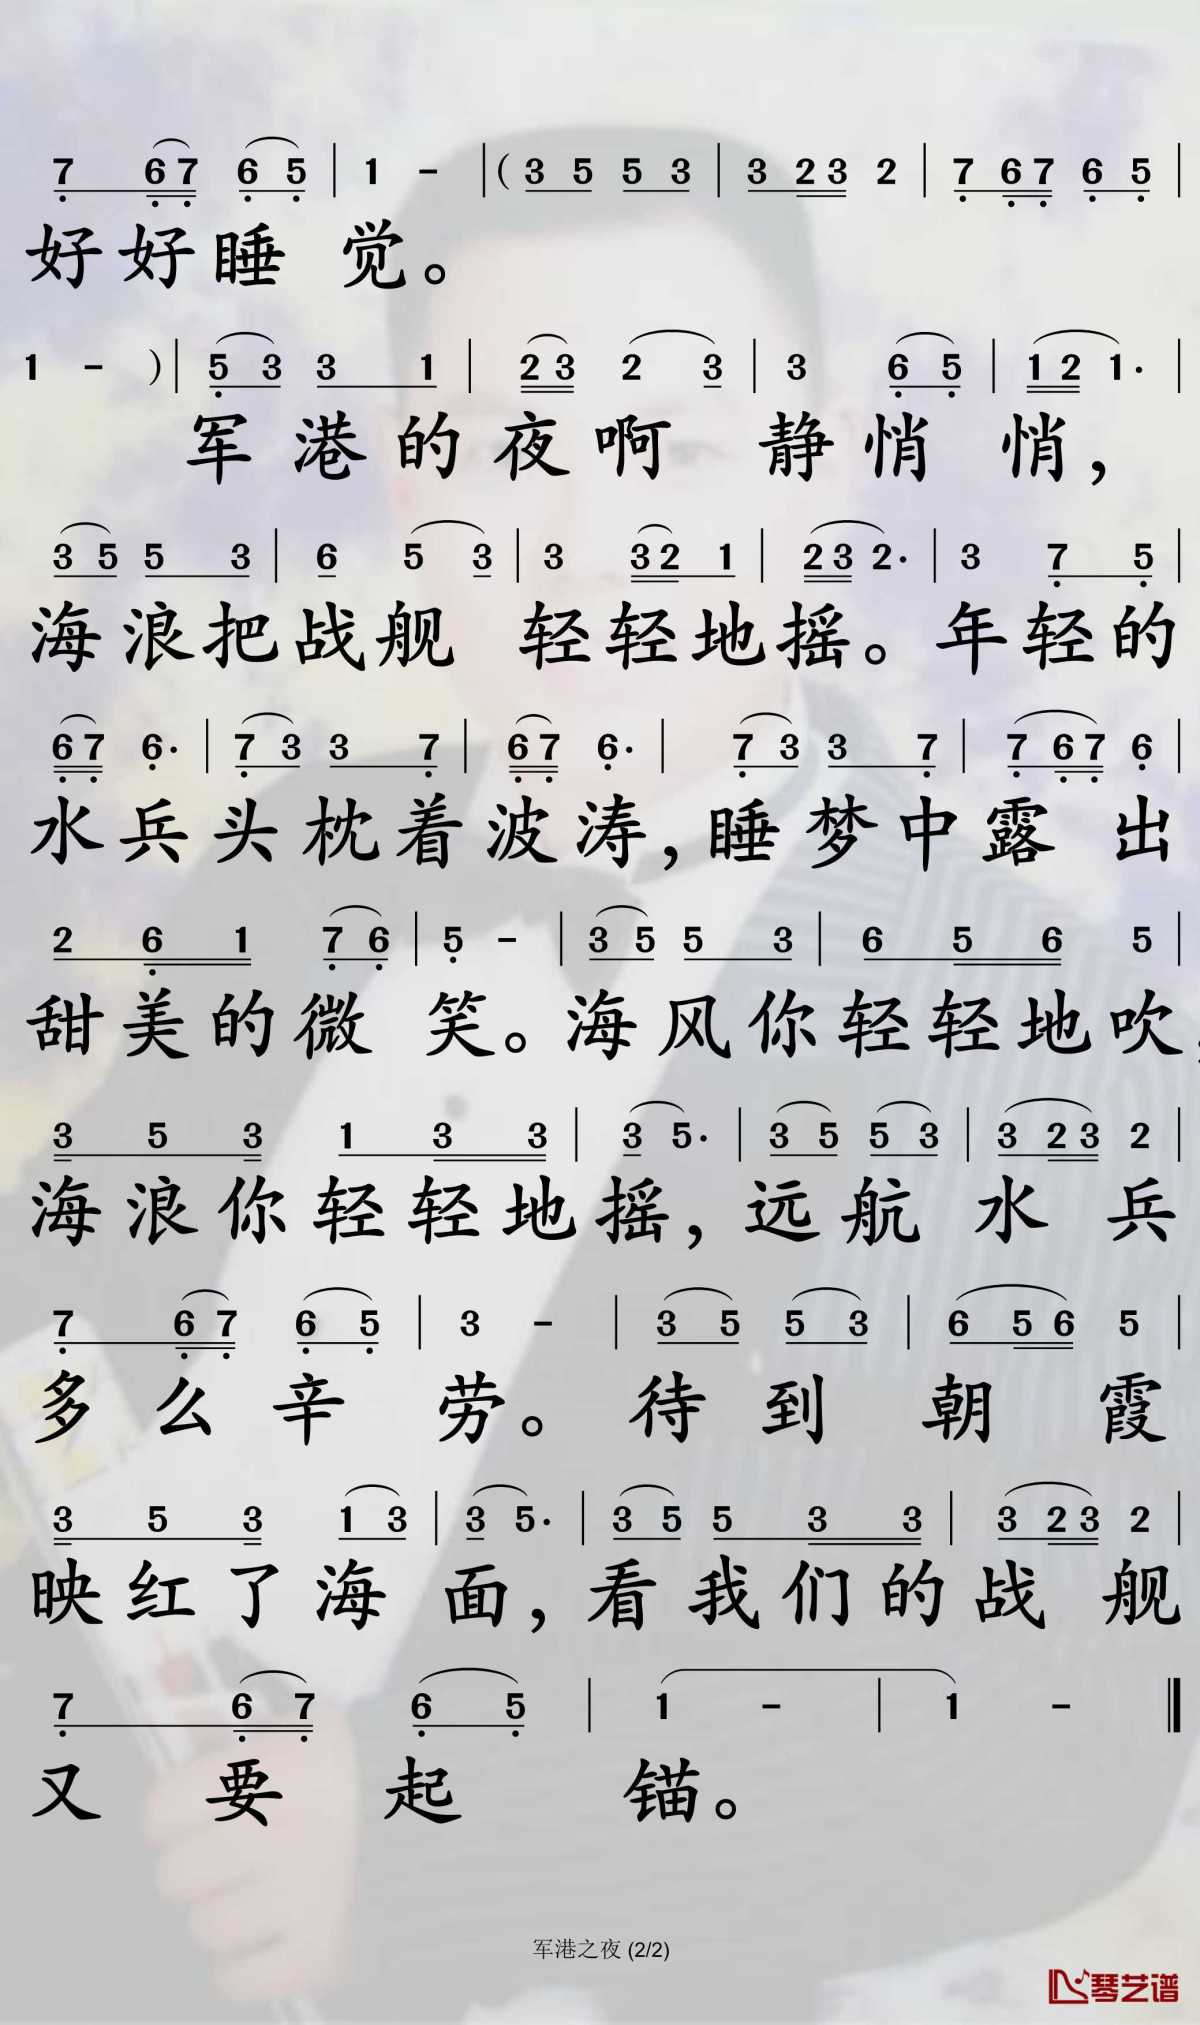 7 6 7 6 5 | 1 - | ( 3 5 5 3 | 3 2 3 2 | 7 6 7 6 5 |
好好睡 觉。
1 - ) | 5 3 3 1 | 2 3 2 3 | 3 6 5 | 1 2 1· |
军港的夜啊 静悄 悄，
3 5 5 3 | 6 5 3 | 3 3 2 1 | 2 3 2· | 3 7 5 |
海浪把战舰 轻轻地摇。年轻的
6 7 6· | 7 3 3 7 | 6 7 6· | 7 3 3 7 | 7 6 7 6 |
水兵头枕着波涛，睡梦中露 出
2 6 1 7 6 | 5 - | 3 5 5 3 | 6 5 6 5 |
甜美的微 笑。海风你轻轻地吹，
3 5 3 1 3 3 | 3 5· | 3 5 5 3 | 3 2 3 2 |
海浪你轻轻地摇，远航 水 兵
7 6 7 6 5 | 3 - | 3 5 5 3 | 6 5 6 5 |
多么辛 劳。待到 朝 霞
3 5 3 1 3 | 3 5· | 3 5 5 3 3 | 3 2 3 2 |
映红了海 面，看我们的战 舰
7 6 7 6 5 | 1 - | 1 - ‖
又 要 起 锚。
军港之夜 (2/2)
琴艺谱